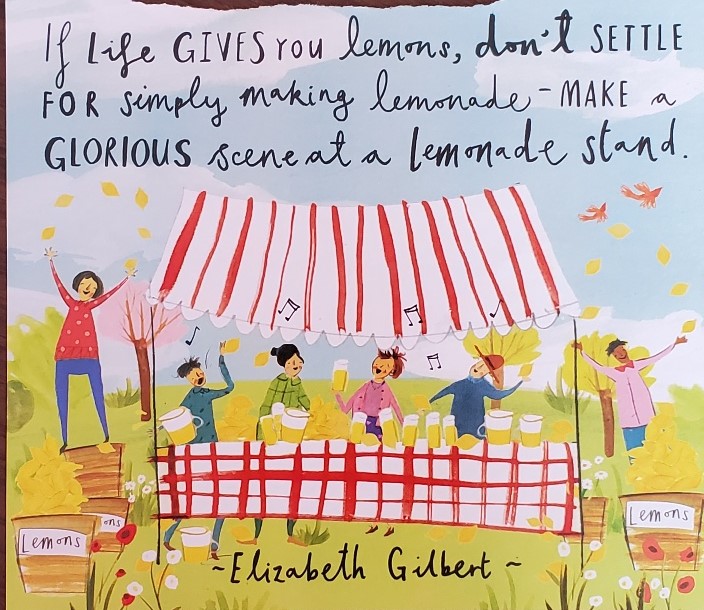 If Life GIVES You lemons, don't SETTLE
FOR simply making lemonade - MAKE a
GLORIOUS scene at a lemonade stand.
Lemons
ons
Lemons
~Elizabeth Gilbert~